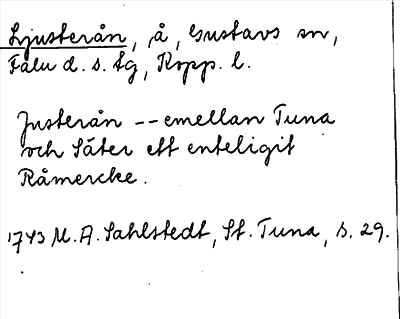 Ljusterån, å, Gustavs sn,
Falu d. s. tg, Kopp. l.
Justerån -- emellan Tuna
och Säter ett enteligit
Råmercke.
1743 M. A. Sahlstedt, St. Tuna, s. 29.